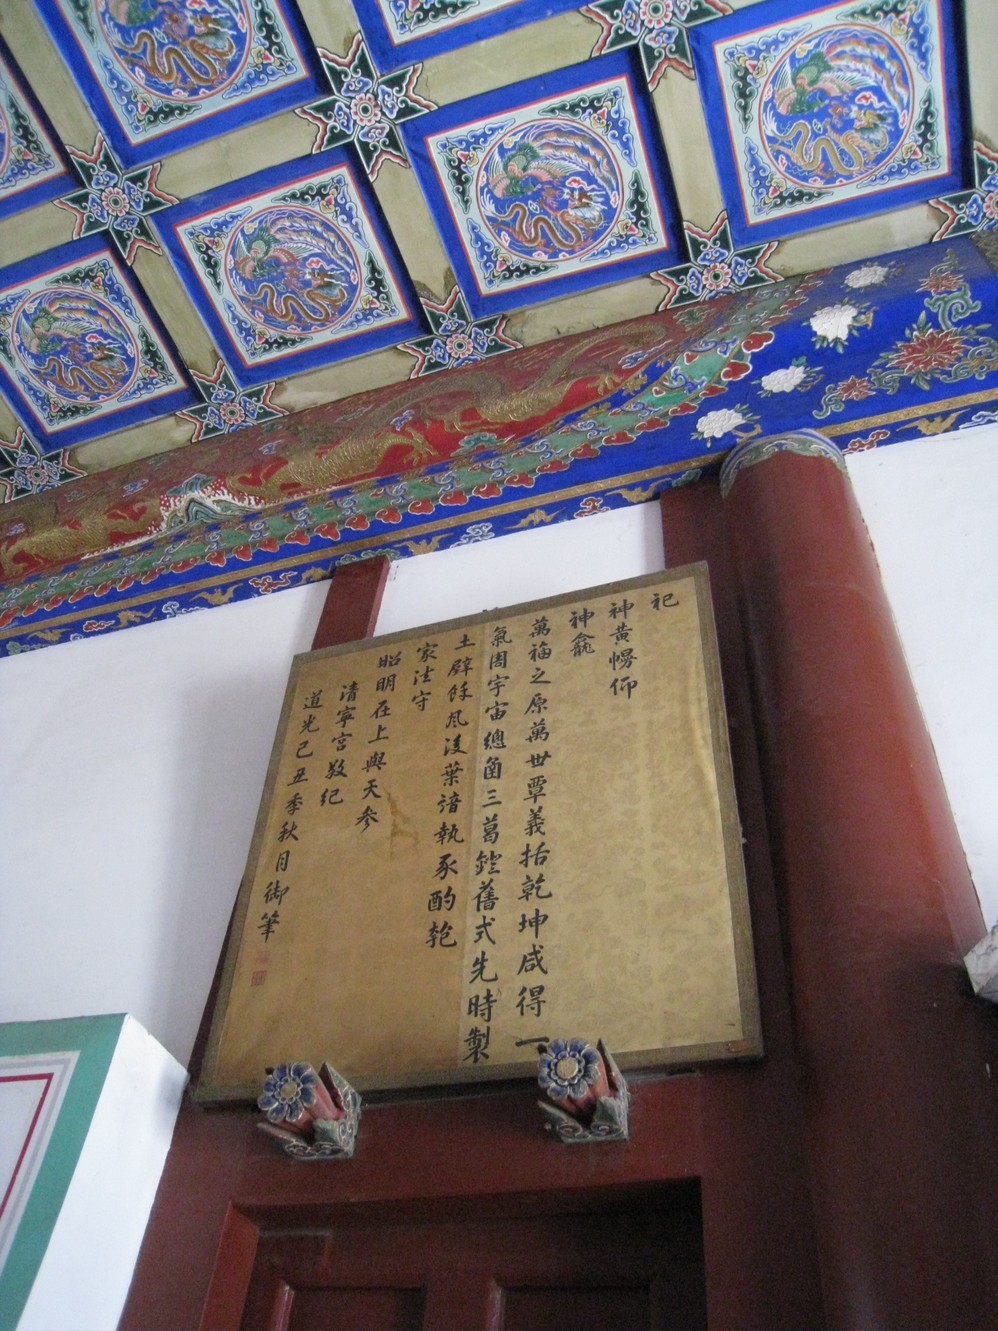 祀
神黃幄仰
神龕
萬福之原萬世覃義括乾坤咸得一
氣周宇宙總函三葛鐙舊式先時製
土壁餘風後葉諳執豕酌匏
家法守
昭明在上與天參
清寧宮敬紀
道光己丑季秋月御筆